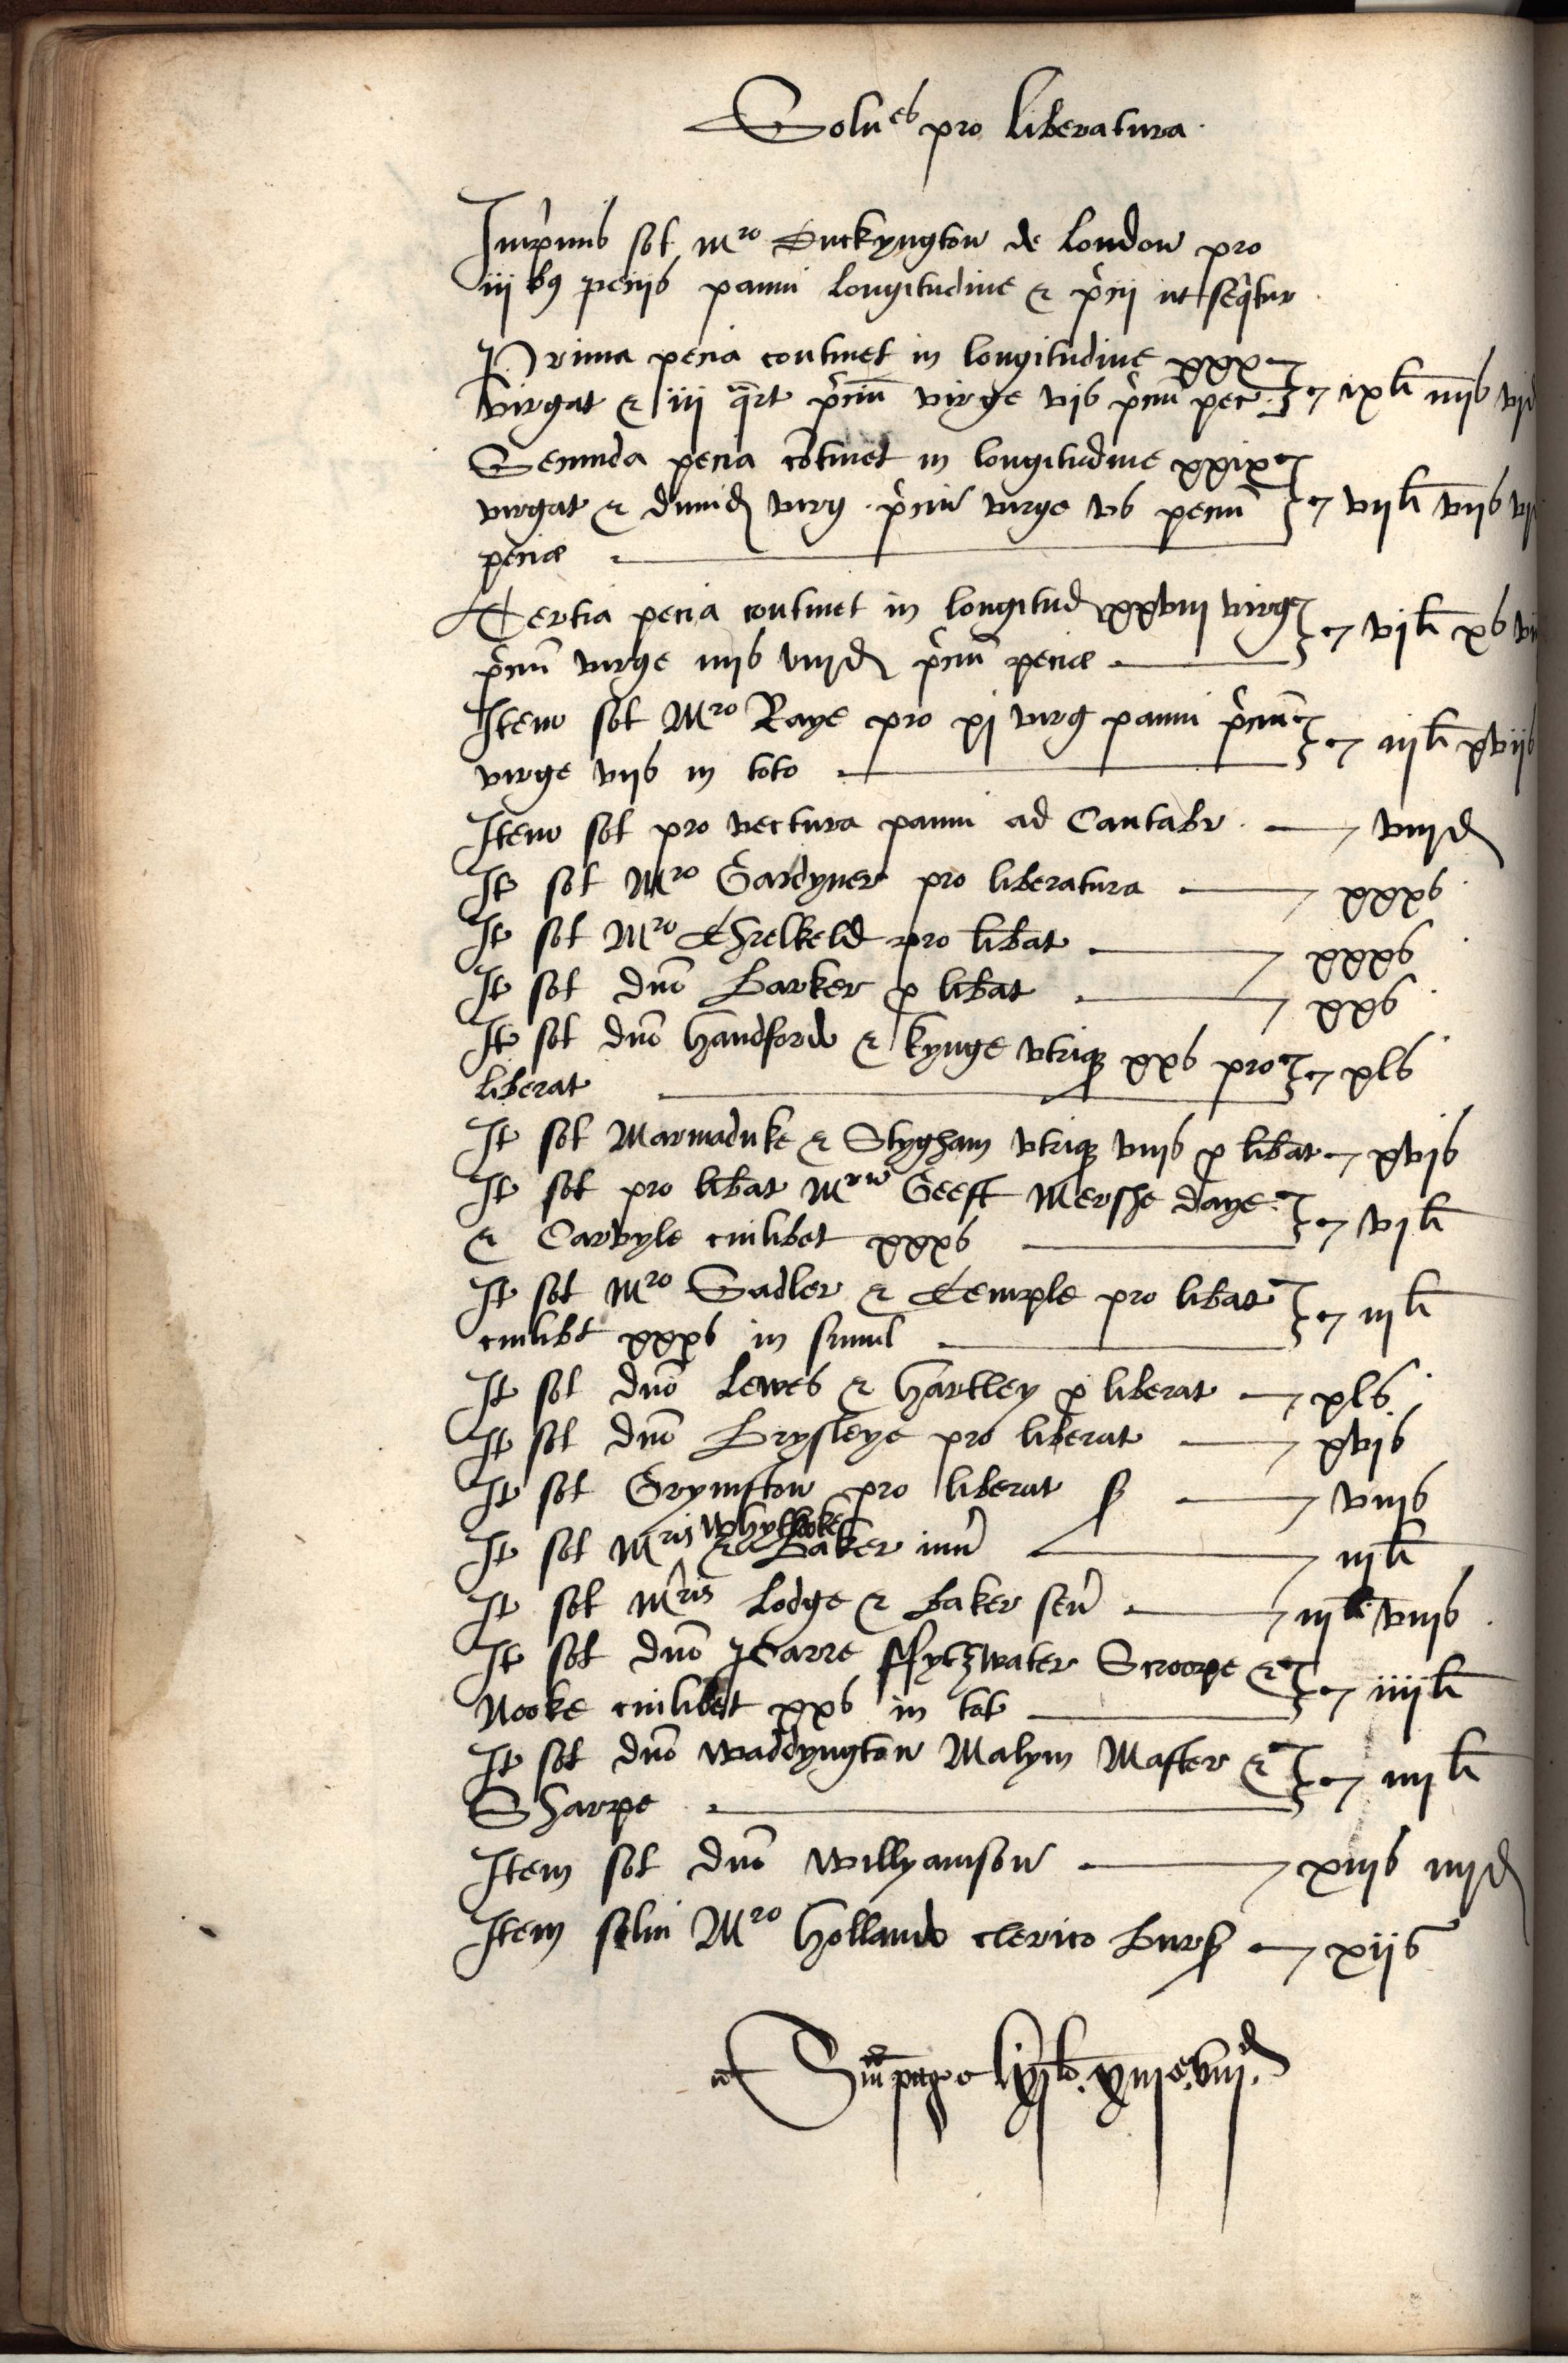 Solues pro liberatura
Inprimis sol Mro Duckyngton de london pro
iij bus peciis panni longitudine & precii ut sequitur
Prima pecia continet in longitudine xxx
virgat & iii quart precium virge vis precium pec ixli iiiis vid
Secunda pecia continet in longitudine xxix
virgat & dimid virg precium virge vs precium viili viis
peciæ
Tertia pecia continet in longitud xxviii virg
precium virge iiiis viiid precium peciæ vili xs
Item sol Mro Raye pro xi virg panni precium
virge viis in toto iiili xviis
Item sol pro vectura panni ad Cantabr viiid
It sol Mro Gardyner pro liberatura xxxs
It sol Mro Threlkeld pro libat xxxs
It sol dno Barker p libat xxs
It sol dno handford & kynge vtrique xxs pro
liberat xls
It sol Marmaduke & Stygham vtrique viiis p libat xvis
It sol pro libat Mrm Geest Mershe daye
& Carvyle cuilibet xxxs vili
It sol Mro Sadler & Temple pro libat
cuilibt xxxs in simul iiili
It sol dno lewes & hartley p liberat xls
It sol dno Brysleye pro liberat xvis
It sol Grymston pro liberat viiis
It sol Mris whytlocke & Baker iun iiili
It sol Mris lodge & baker sen iiili viiis
It sol dno Parre ffytzwater Scroope &
Nooke cuilibet xxs in tot iiiili
It sol dno waddyngton Malym Master &
Sharpe iiiili
Item sol dno willyamson xiiis iiiid
Item solui Mro holland clerico Burs xiis